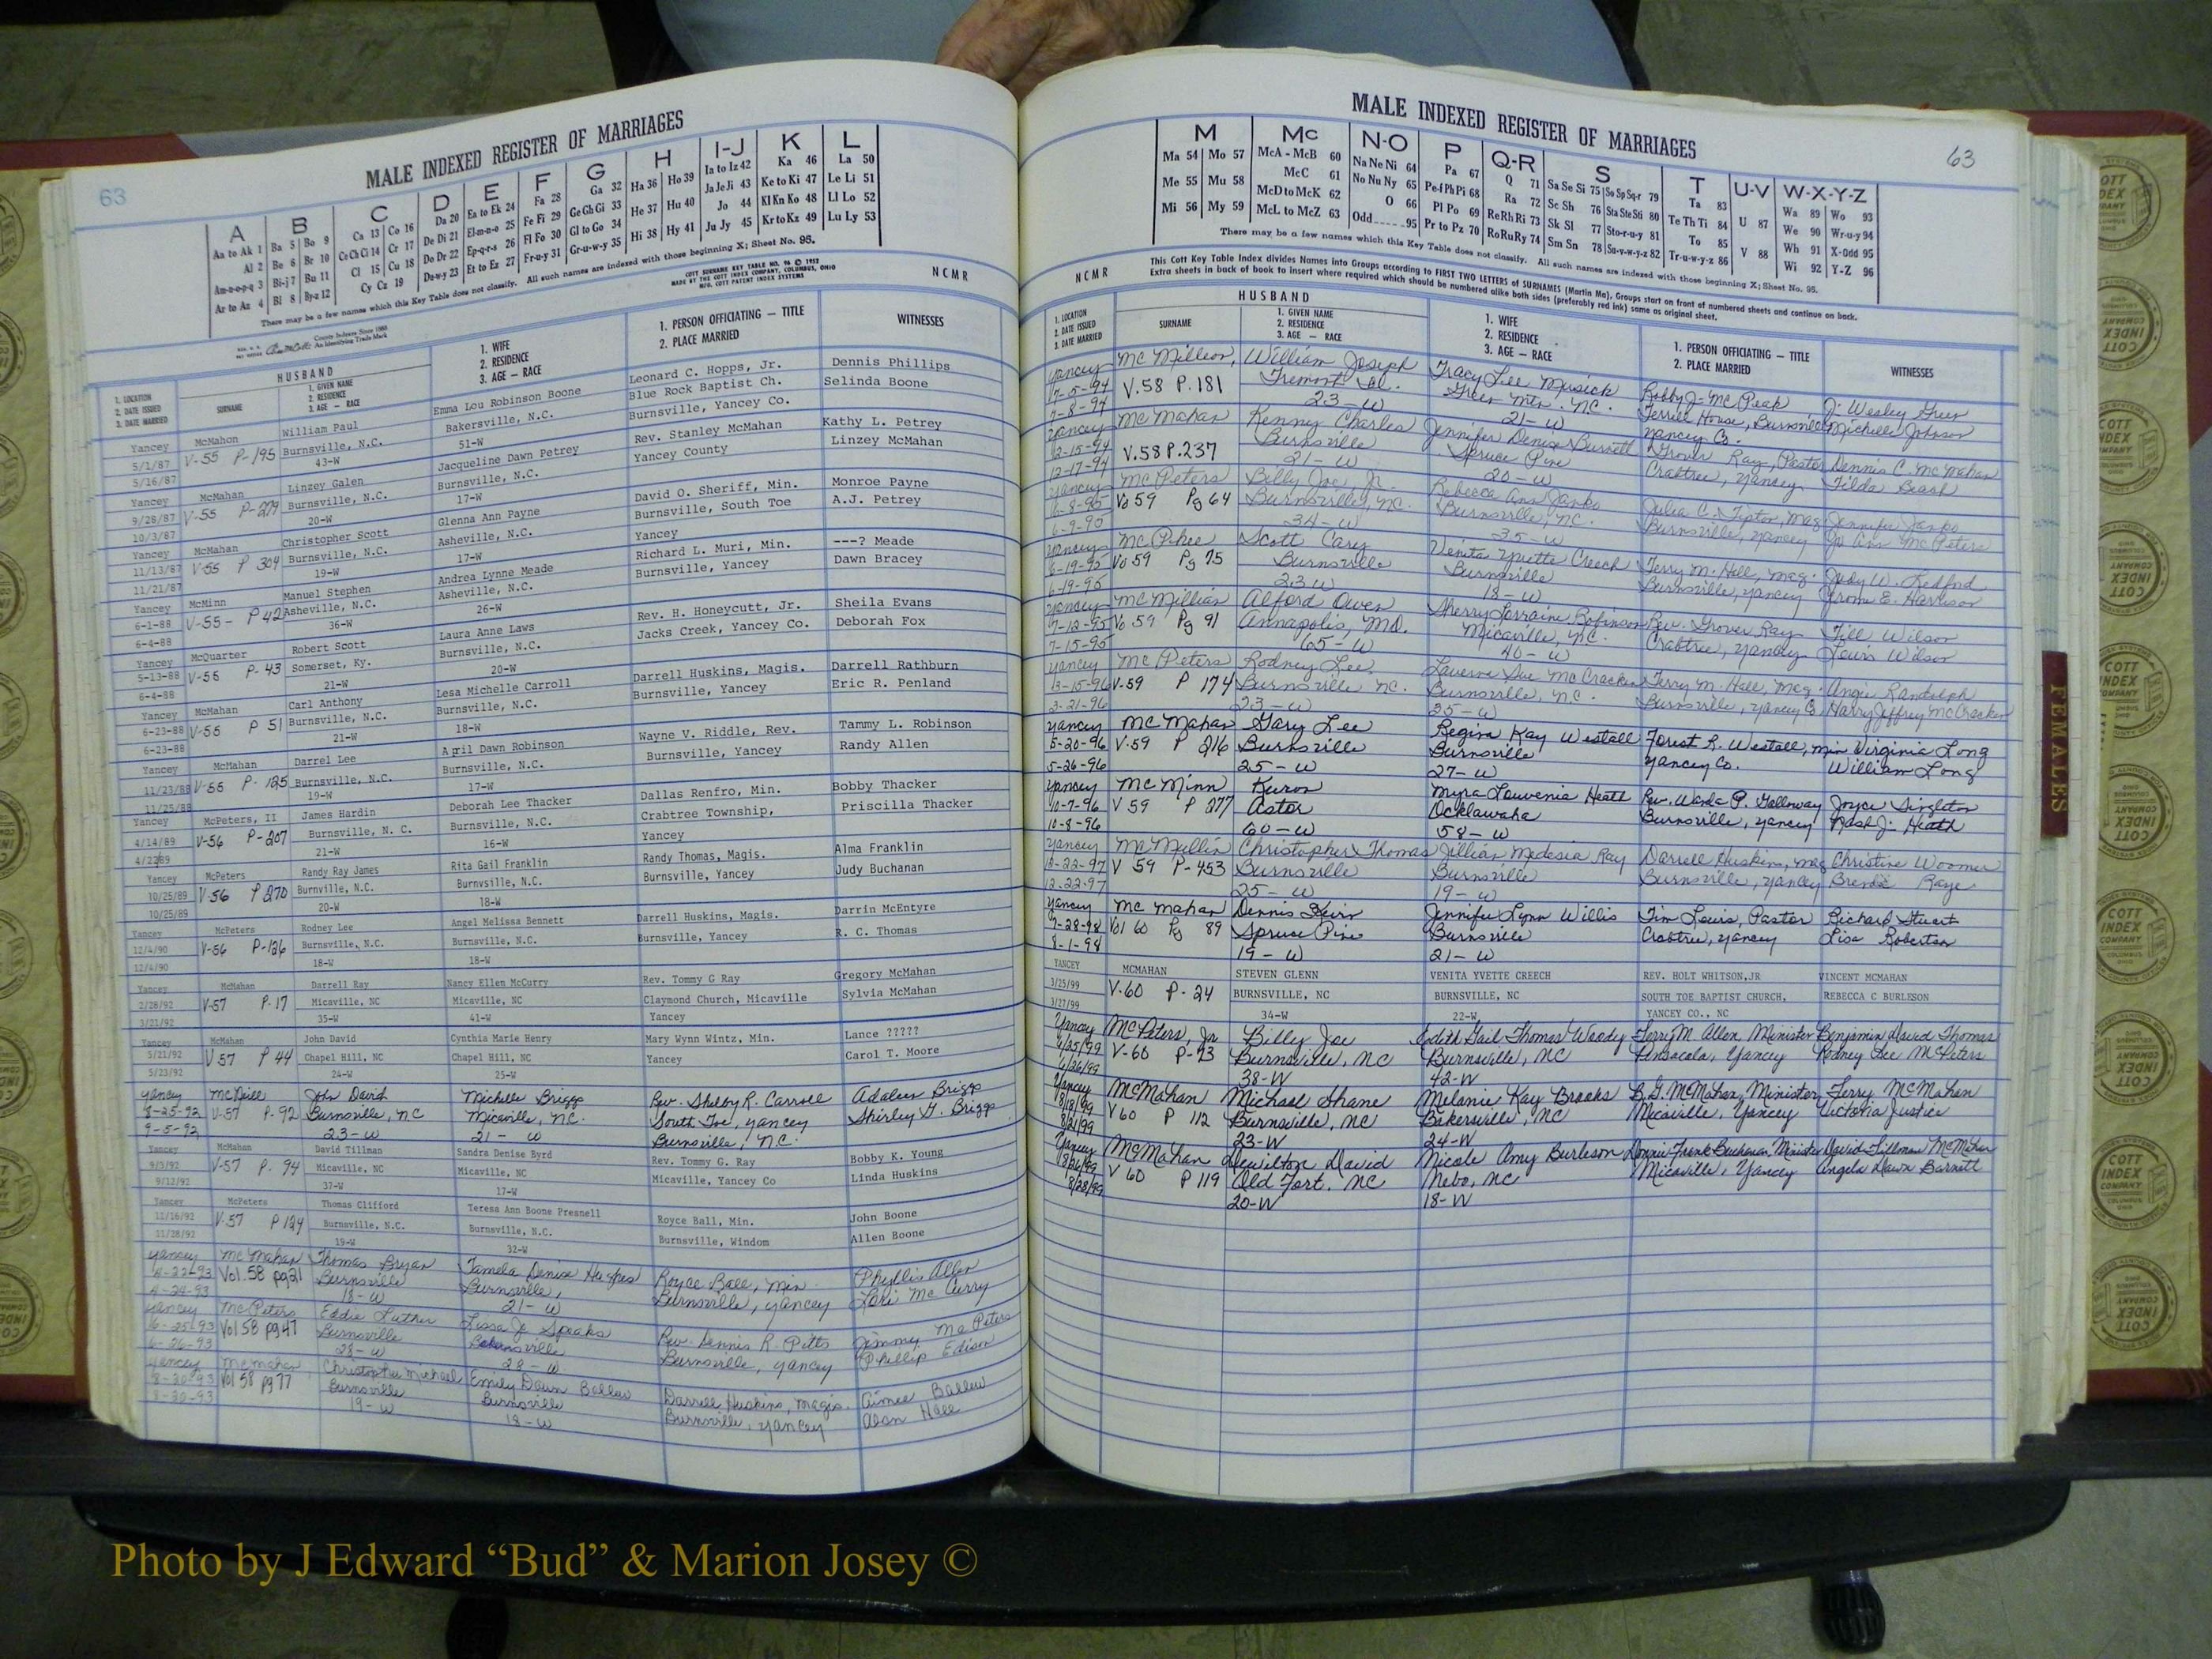 63
MALE INDEXED REGISTER OF MARRIAGES
A B C D E F G H I-J K L
Aa to Ak 1 Ba 5 Bo 9 Ca 13 Co 16 Da 20 Ea to Ek 24 Fa 28 Ga 32 Ha 36 Ho 39 Ia to Iz 42 Ka 46 La 50
Al 2 Be 6 Br 10 Ce Ch Ci 14 Cr 17 De Di 21 El-m-n-o 25 Fe Fi 29 Ge Gh Gi 33 He 37 Hu 40 Ja Je Ji 43 Ke to Ki 47 Le Li 51
Am-n-o-p-q 3 Bi-j 7 Bu 11 Cl 15 Cu 18 Do Dr 22 Ep-q-r-s 26 Fl Fo 30 Gl to Go 34 Hi 38 Hy 41 Jo 44 Kl Kn Ko 48 Ll Lo 52
Ar to Az 4 Bl 8 By-z 12 Cy Cz 19 Du-w-y 23 Et to Ez 27 Fr-u-y 31 Gr-u-w-y 35 Ju Jy 45 Kr to Kz 49 Lu Ly 53
There may be a few names which this Key Table does not classify. All such names are indexed with those beginning X; Sheet No. 96.
County Indexes Since 1888
An Identifying Trade Mark
COTT SURNAME KEY TABLE NO. 96 © 1952
MADE BY THE COTT INDEX COMPANY, COLUMBUS, OHIO
MFG. COTT PATENT INDEX SYSTEMS
NCMR
HUSBAND
1. LOCATION
2. DATE ISSUED
3. DATE MARRIED
SURNAME
1. GIVEN NAME
2. RESIDENCE
3. AGE — RACE
1. WIFE
2. RESIDENCE
3. AGE — RACE
1. PERSON OFFICIATING — TITLE
2. PLACE MARRIED
WITNESSES
Yancey McMahon William Paul Emma Lou Robinson Boone Leonard C. Hopps, Jr. Dennis Phillips
5/1/87 V-55 P-195 Burnsville, N.C. Bakersville, N.C. Blue Rock Baptist Ch. Selinda Boone
5/16/87 43-W 51-W Burnsville, Yancey Co.
Yancey McMahan Linzey Galen Jacqueline Dawn Petrey Rev. Stanley McMahan Kathy L. Petrey
9/28/87 V-55 P-279 Burnsville, N.C. Burnsville, N.C. Yancey County Linzey McMahan
10/3/87 20-W 17-W
Yancey McMahan Christopher Scott Glenna Ann Payne David O. Sheriff, Min. Monroe Payne
11/13/87 V-55 P 304 Burnsville, N.C. Asheville, N.C. Burnsville, South Toe A.J. Petrey
11/21/87 19-W 17-W Yancey
Yancey McMinn Manuel Stephen Andrea Lynne Meade Richard L. Muri, Min. ---? Meade
6-1-88 V-55- P 42 Asheville, N.C. Asheville, N.C. Burnsville, Yancey Dawn Bracey
6-4-88 36-W 26-W
Yancey McQuarter Robert Scott Laura Anne Laws Rev. H. Honeycutt, Jr. Sheila Evans
5-13-88 V-55 P-43 Somerset, Ky. Burnsville, N.C. Jacks Creek, Yancey Co. Deborah Fox
6-4-88 21-W 20-W
Yancey McMahan Carl Anthony Lesa Michelle Carroll Darrell Huskins, Magis. Darrell Rathburn
6-23-88 V-55 P 51 Burnsville, N.C. Burnsville, N.C. Burnsville, Yancey Eric R. Penland
6-23-88 21-W 18-W
Yancey McMahan Darrel Lee April Dawn Robinson Wayne V. Riddle, Rev. Tammy L. Robinson
11/23/88 V-55 P-125 Burnsville, N.C. Burnsville, N.C. Burnsville, Yancey Randy Allen
11/25/88 19-W 17-W
Yancey McPeters, II James Hardin Deborah Lee Thacker Dallas Renfro, Min. Bobby Thacker
4/14/89 V-56 P-207 Burnsville, N. C. Burnsville, N.C. Crabtree Township, Priscilla Thacker
4/22/89 21-W 16-W Yancey
Yancey McPeters Randy Ray James Rita Gail Franklin Randy Thomas, Magis. Alma Franklin
10/25/89 V-56 P 270 Burnville, N.C. Burnvsille, N.C. Burnsville, Yancey Judy Buchanan
10/25/89 20-W 18-W
Yancey McPeters Rodney Lee Angel Melissa Bennett Darrell Huskins, Magis. Darrin McEntyre
12/4/90 V-56 P-126 Burnsville, N.C. Burnsville, N.C. Burnsville, Yancey R. C. Thomas
12/4/90 18-W 18-W
Yancey McMahan Darrell Ray Nancy Ellen McCurry Rev. Tommy G Ray Gregory McMahan
2/28/92 V-57 P-17 Micaville, NC Micaville, NC Claymond Church, Micaville Sylvia McMahan
3/21/92 35-W 41-W Yancey
Yancey McMahan John David Cynthia Marie Henry Mary Wynn Wintz, Min. Lance ?????
5/21/92 V 57 P 44 Chapel Hill, NC Chapel Hill, NC Yancey Carol T. Moore
5/23/92 24-W 25-W
Yancey McNeill John David Michelle Briggs Rev. Shelby R. Carroll Adaleen Briggs
8-25-92 V-57 P-92 Burnsville, NC Micaville, N.C. South Toe, Yancey Shirley G. Briggs
9-5-92 23-W 21-W Burnsville, N.C.
Yancey McMahan David Tillman Sandra Denise Byrd Rev. Tommy G. Ray Bobby K. Young
9/3/92 V-57 P-94 Micaville, NC Micaville, NC Micaville, Yancey Co Linda Huskins
9/12/92 37-W 17-W
Yancey McPeters Thomas Clifford Teresa Ann Boone Presnell Royce Ball, Min. John Boone
11/16/92 V-57 P 124 Burnsville, N.C. Burnsville, N.C. Burnsville, Windom Allen Boone
11/28/92 19-W 32-W
Yancey McMahan Thomas Bryan Tamela Denise Hughes Royce Ball, Min Phyllis Allen
4-22-93 Vol.58 pg21 Burnsville Burnsville, Burnsville, Yancey Lori McCurry
4-24-93 18-W 21-W
Yancey McPeters Eddie Luther Lissa Jo Speaks Rev. Dennis R. Pitts Jimmy McPeters
6-25-93 Vol 58 pg 47 Burnsville Bakersville Burnsville, Yancey Phillip Edison
6-26-93 28-W 28-W
Yancey McMahan Christopher Michael Emily Dawn Ballew Darrell Huskins, Magis. Aimee Ballew
8-20-93 Vol 58 pg 77 Burnsville Burnsville Burnsville, Yancey Alan Hall
8-20-93 19-W 18-W
MALE INDEXED REGISTER OF MARRIAGES
63
M Mc N-O P Q-R S T U-V W-X-Y-Z
Ma 54 Mo 57 McA - McB 60 Na Ne Ni 64 Pa 67 Q 71 Sa Se Si 75 So Sp Sq-r 79 Ta 83 U 87 Wa 89 Wo 93
Me 55 Mu 58 McC 61 No Nu Ny 65 Pe-f Ph Pi 68 Ra 72 Sc Sh 76 Sta Ste Sti 80 Te Th Ti 84 V 88 We 90 Wr-u-y 94
Mi 56 My 59 McD to McK 62 O 66 Pl Po 69 Re Rh Ri 73 Sk Sl 77 Sto-r-u-y 81 To 85 Wh 91 X-Odd 95
McL to McZ 63 Odd 95 Pr to Pz 70 Ro Ru Ry 74 Sm Sn 78 Su-v-w-y-z 82 Tr-u-w-y-z 86 Wi 92 Y-Z 96
There may be a few names which this Key Table does not classify. All such names are indexed with those beginning X; Sheet No. 95.
NCMR
This Cott Key Table Index divides Names into Groups according to FIRST TWO LETTERS of SURNAMES (Martin Ma), Groups start on front of numbered sheets and continue on back.
Extra sheets in back of book to insert where required which should be numbered alike both sides (preferably red ink) same as original sheet.
HUSBAND
1. LOCATION
2. DATE ISSUED
3. DATE MARRIED
SURNAME
1. GIVEN NAME
2. RESIDENCE
3. AGE — RACE
1. WIFE
2. RESIDENCE
3. AGE — RACE
1. PERSON OFFICIATING — TITLE
2. PLACE MARRIED
WITNESSES
Yancey McMillion, William Joseph Tracy Lee Musick Robby J. McPeak J. Wesley Greer
7-5-94 V.58 P.181 Fremont Green Mtn. NC. Terrell House, Burnsville Michelle Johnson
7-8-94 23-W 21-W Yancey Co.
Yancey McMahan Kenny Charles Jennifer Denise Burnett Grover Ray, Pastor Dennis C. McMahan
12-15-94 V.58 P.237 Burnsville Spruce Pine Crabtree, Yancey Tilda Beash
12-17-94 21-W 20-W
Yancey McPeters Billy Joe Jr. Rebecca Ann Janks Julia C. Tipton, Mag Jennifer Janks
6-8-95 Vo 59 Pg 64 Burnsville, NC. Burnsville, NC. Burnsville, Yancey Jo Ann McPeters
6-9-95 34-W 35-W
Yancey Scott Cary Venita Yvette Creech Terry M. Hall, Mag. Judy W. Ledford
6-19-95 Vo 59 Pg 75 Burnsville Burnsville Burnsville, Yancey E. Harrison
6-19-95 23 W 18-W
Yancey McMillian Alford Owen Sherry Lorraine Robinson Rev. Grover Ray Till Wilson
7-12-95 Vo 59 Pg 91 Annapolis, MD. Micaville, NC. Crabtree, Yancey Lewis Wilson
7-15-95 65-W 40-W
Yancey McPeters Rodney Lee Laverne Sue McCracken Terry M. Hall, Mag. Angie Randolph
3-15-96 V-59 P 174 Burnsville NC. Burnsville, NC. Burnsville, Yancey Co Harry Jeffrey McCracken
3-21-96 23-W 25-W
Yancey McMahan Gary Lee Regina Kay Westall Forest R. Westall, min Virginia Long
5-20-96 V-59 P 216 Burnsville Burnsville Yancey Co. William Long
5-26-96 25-W 27-W
Yancey McMinn Kuron Myra Louvenia Heath Rev. Warda P. Galloway Joyce Singleton
10-7-96 V 59 P 277 Astor Ocklawaha Burnsville, Yancey Nash J. Heath
10-8-96 60-W 58-W
Yancey McMullin Christopher Thomas Jillian Medesia Ray Darrell Huskins, mag Christine Woomer
12-22-97 V 59 P-453 Burnsville Burnsville Burnsville, Yancey Brenda Raye
12-22-97 25-W 19-W
Yancey McMahan Dennis Keirn Jennifer Lynn Willis Tim Lewis, Pastor Richard Stuart
7-28-98 Vol 60 Pg 89 Spruce Pine Burnsville Crabtree, Yancey Lisa Robertson
8-1-98 19-W 21-W
YANCEY MCMAHAN STEVEN GLENN VENITA YVETTE CREECH REV. HOLT WHITSON,JR VINCENT MCMAHAN
3/25/99 V-60 P-24 BURNSVILLE, NC BURNSVILLE, NC SOUTH TOE BAPTIST CHURCH, REBECCA C BURLESON
3/27/99 34-W 22-W YANCEY CO., NC
Yancey McPeters, Jr Billy Joe Edith Gail Thomas Woody Terry M. Allen, Minister Benjamin David Thomas
6/25/99 V-60 P-93 Burnsville, NC Burnsville, NC Pensacola, Yancey Rodney Lee McPeters
6/26/99 38-W 42-W
Yancey McMahan Michael Shane Melanie Kay Brooks B.G. McMahan, Minister Terry McMahan
8/18/99 V 60 P 112 Burnsville, NC Bakersville, NC Micaville, Yancey Victoria Justice
8/21/99 23-W 24-W
Yancey McMahan Dewilton David Nicole Amy Burleson Donnie Frank Buchanan Minister David Tillman McMahan
8/26/99 V 60 P 119 Old Fort, NC Nebo, NC Micaville, Yancey Angela Dawn Barnett
8/28/99 20-W 18-W
FEMALES
Photo by J Edward “Bud” & Marion Josey ©